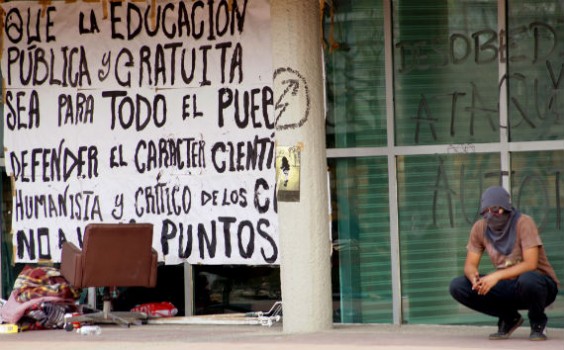 QUE LA EDUCACIÓN
PÚBLICA Y GRATUITA
SEA PARA TODO EL PUEB
DEFENDER EL CARÁCTER CIENTI
HUMANISTA Y CRÍTICO DE LOS C
NO PUNTOS
DESOBEDE
ATAQU
AUTO